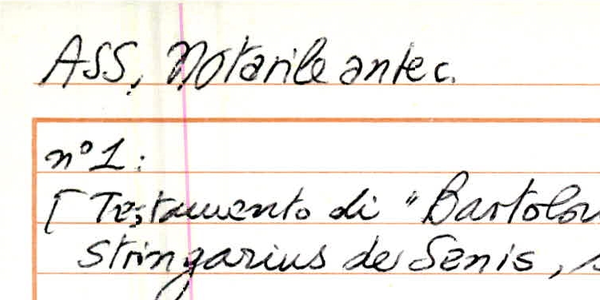 ASS, Notarile antec.
n° 1:
[Testamento di "Bartolom
Stringarius de Senis, s